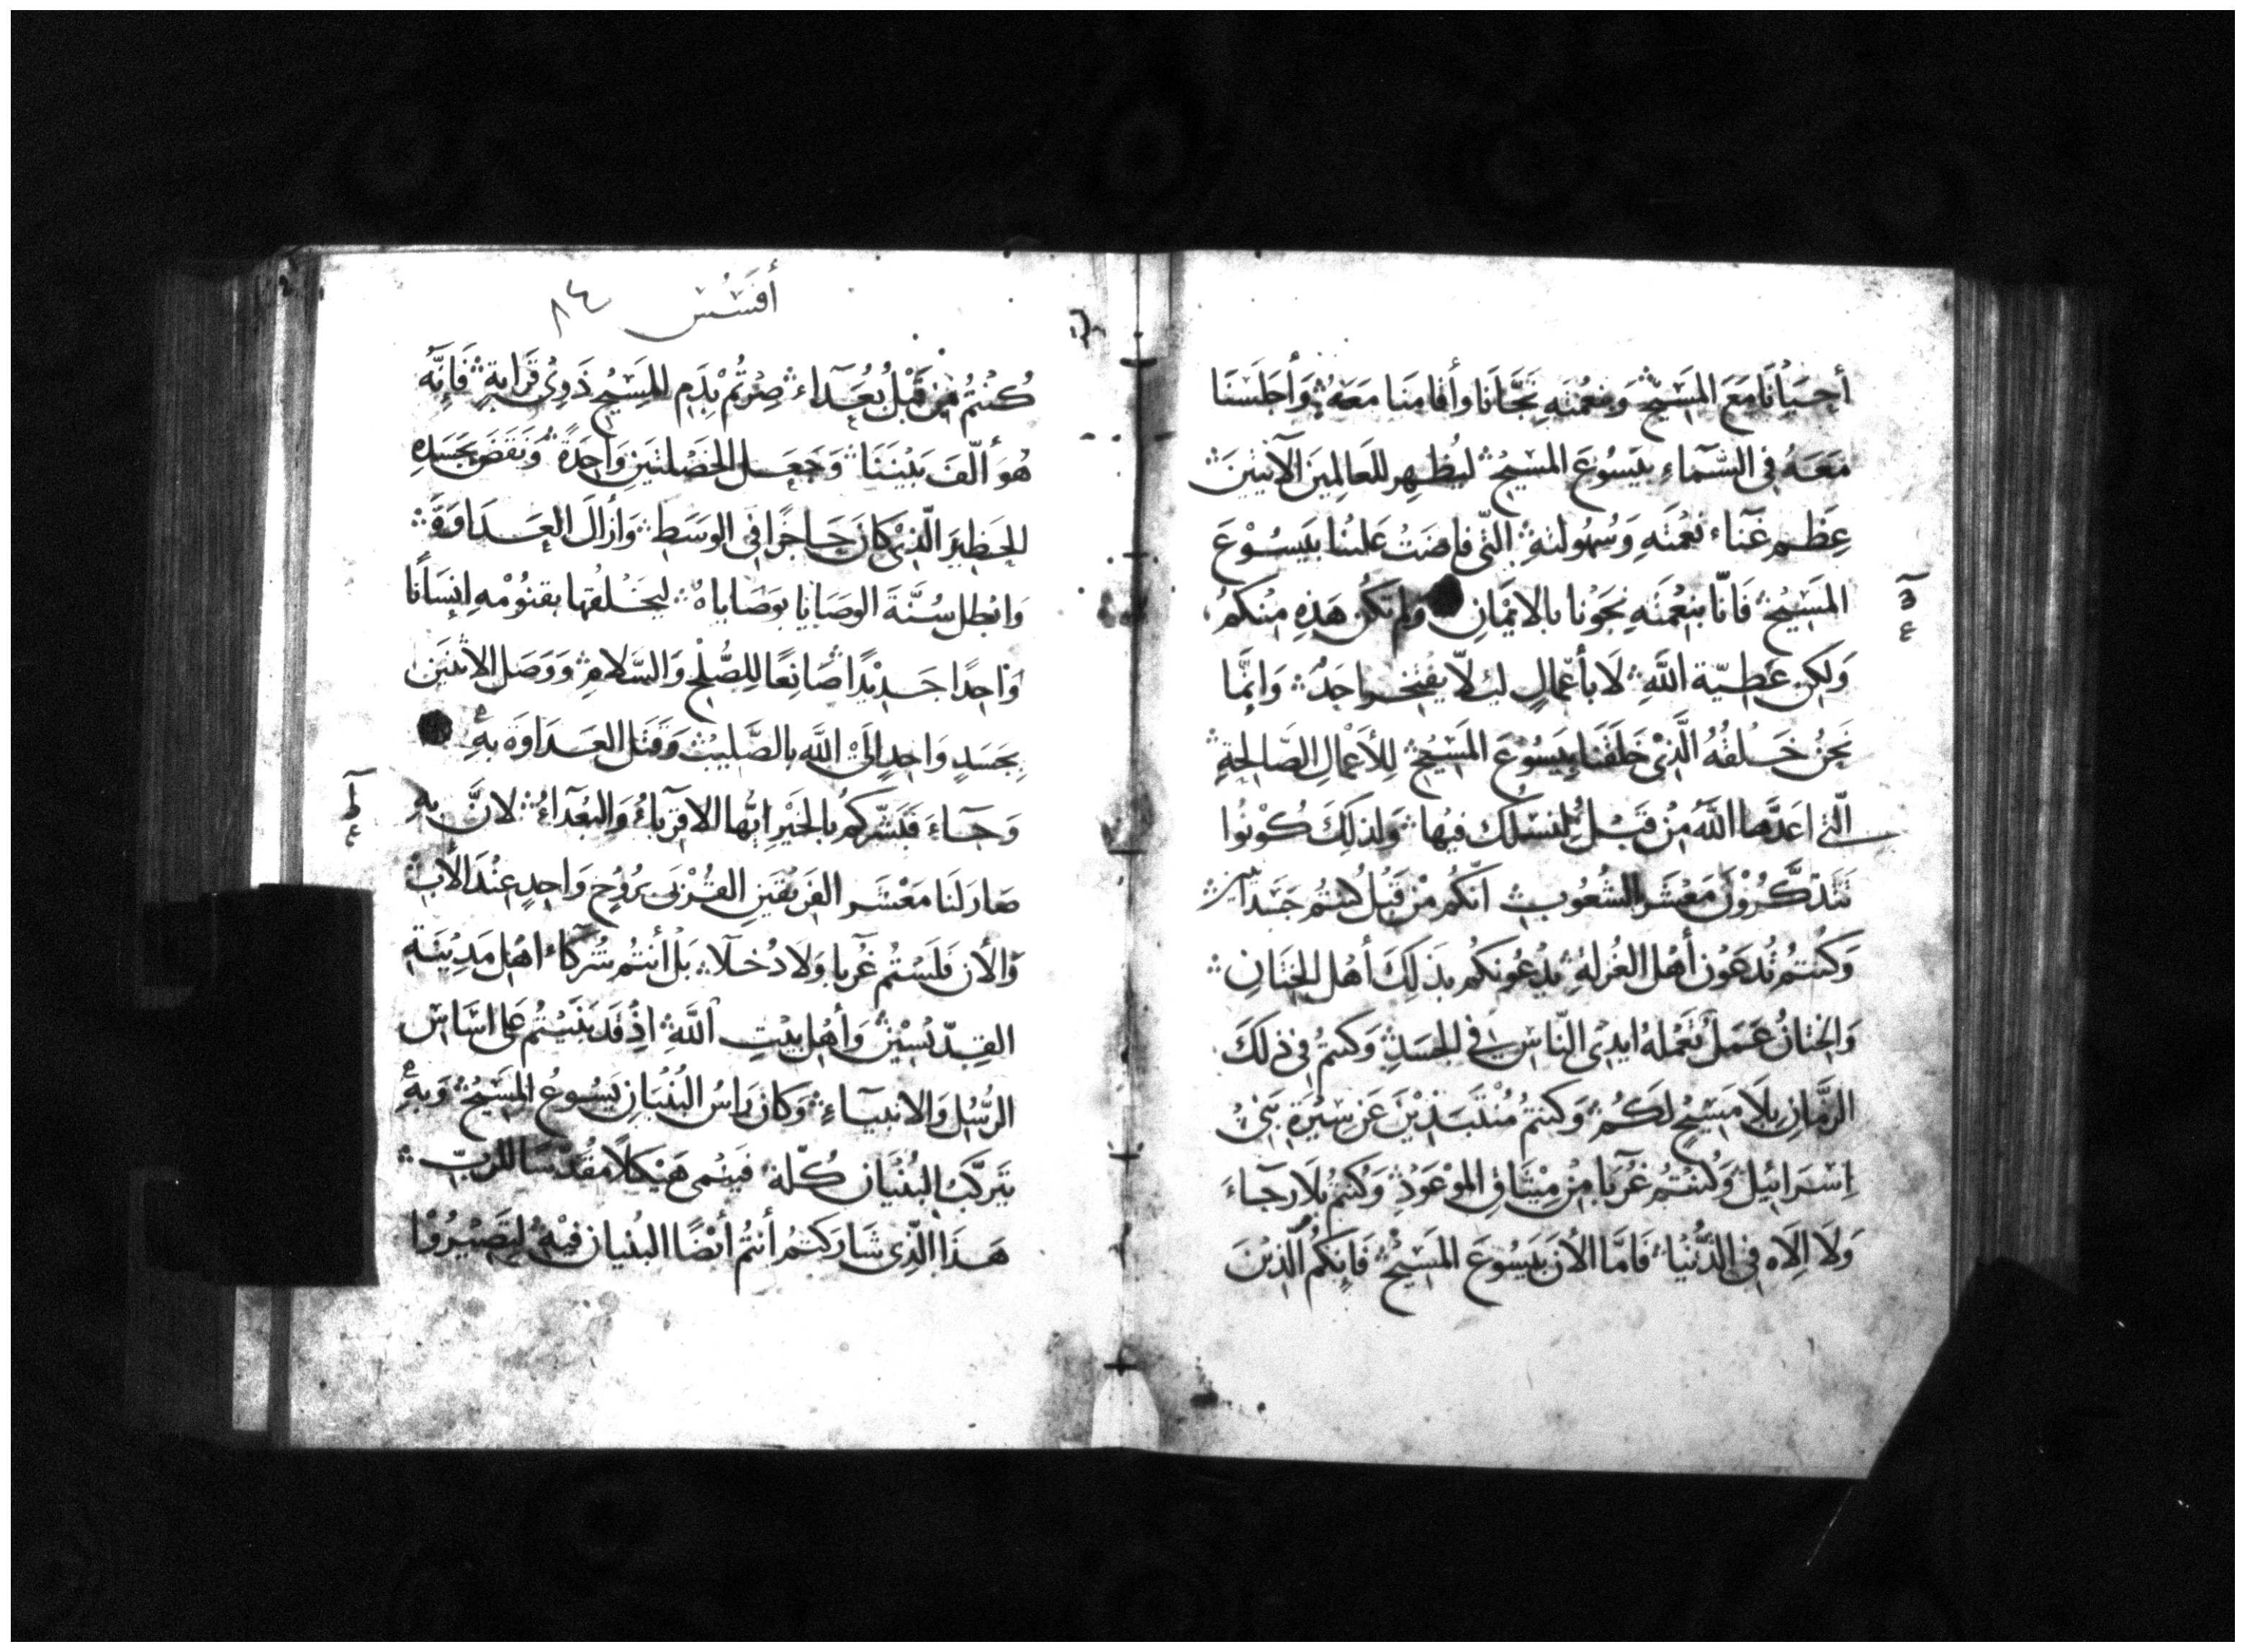 أحيانا مع المسيح ونعمته نجانا وأقامنا معه وأجلسنا
معه في السماء بيسوع المسيح ليظهر للعالمين الآتيين
عظم غناء نعمته وسهولته التي فاضت علينا بيسوع
المسيح فانا بنعمته نجونا بالايمان ولم تكن هذه منكم
ولكن عطية الله لا بأعمال ليلا يفتخر واحد وانما
نحن خلقه الذي خلقنا بيسوع المسيح للأعمال الصالحة
التي اعدها الله من قبل لنسلك فيها ولذلك كونوا
تتذكرون معشر الشعوب انكم من قبل كنتم جسدانيين
وكنتم تدعون أهل الغرله يدعونكم بذلك أهل الختان
والختان عمل تعمله ايدي الناس في الجسد وكنتم في ذلك
الزمان بلا مسيح لكم وكنتم منتبذين عن سيرة بني
اسرائيل وكنتم غربا من ميثاق الموعود وكنتم بلا رجاء
ولا الاه في الدنيا فاما الأن بيسوع المسيح فإنكم الذين
أفسس ٨٤
كنتم من قبل بعداء صرتم بدم المسيح ذوي قرابة فإنه
هو ألف بيننا وجعل الخصلتين واحدة ونقض بجسده
الحظير الذي كان حاجزا في الوسط وازال العداوة
وابطل سنة الوصايا بوصاياه ليخلقها بقنومه إنسانا
واحدا جديدا صانعا للصلح والسلام ووصل الاثنين
بجسد واحد إلى الله بالصليب وقتل العداوه به
وجاء فبشركم بالخير ايها الاقرباء والبعداء لان به
صار لنا معشر الفريقين القربى بروح واحد عند الأب
والأن فلستم غربا ولا دخلا بل أنتم شركاء اهل مدينة
القديسين وأهل بيت الله اذ قد بنيتم على اساس
الرسل والانبياء وكان راس البنيان يسوع المسيح وبه
يتركب البنيان كله فينمى هيكلا مقدسا للرب
هذا الذي شاركتم أنتم أيضا البنيان فيه لتصيروا